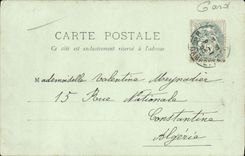 Gard
CARTE POSTALE
Ce côté est exclusivement réservé à l'adresse
Mademoiselle Valentine Meynadier
15 Rue Nationale
Constantine
Algérie